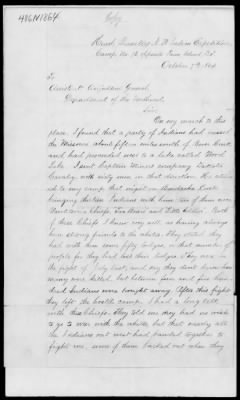 486N1864
Copy.
Head Quarters N.W. Indian Expedition
Camp No. 76 opposite Farm Island D.T.
October 7th 1864
To
Assistant Adjutant General
Department of the Northwest.
Sir:
On my march to this
place I found that a party of Indians had crossed
the Missouri about fifteen miles north of
and had proceeded west to a lake called Wood
Lake. I sent Captain Miners company Dakota
Cavalry with sixty men in that direction. He returned
to my camp that night on
bringing thirteen Indians with him, two of them were
Chiefs, Two Bears and Little Soldier. Both
of these Chiefs I knew very well as having always
been strong friends to the whites. They stated they
had with them some fifty lodges, or that number of
people for they had lost their lodges. They were in
the fight of July last, and say they don't know how
many were killed, but between one and five hundred
Indians were brought away. After this fight
they left the hostile camp. I had a long talk
with the Chiefs. They told me they had no wish
to go to war with the whites, but that nearly all
the Indians out west had banded together to
fight me, some of them backed out when they